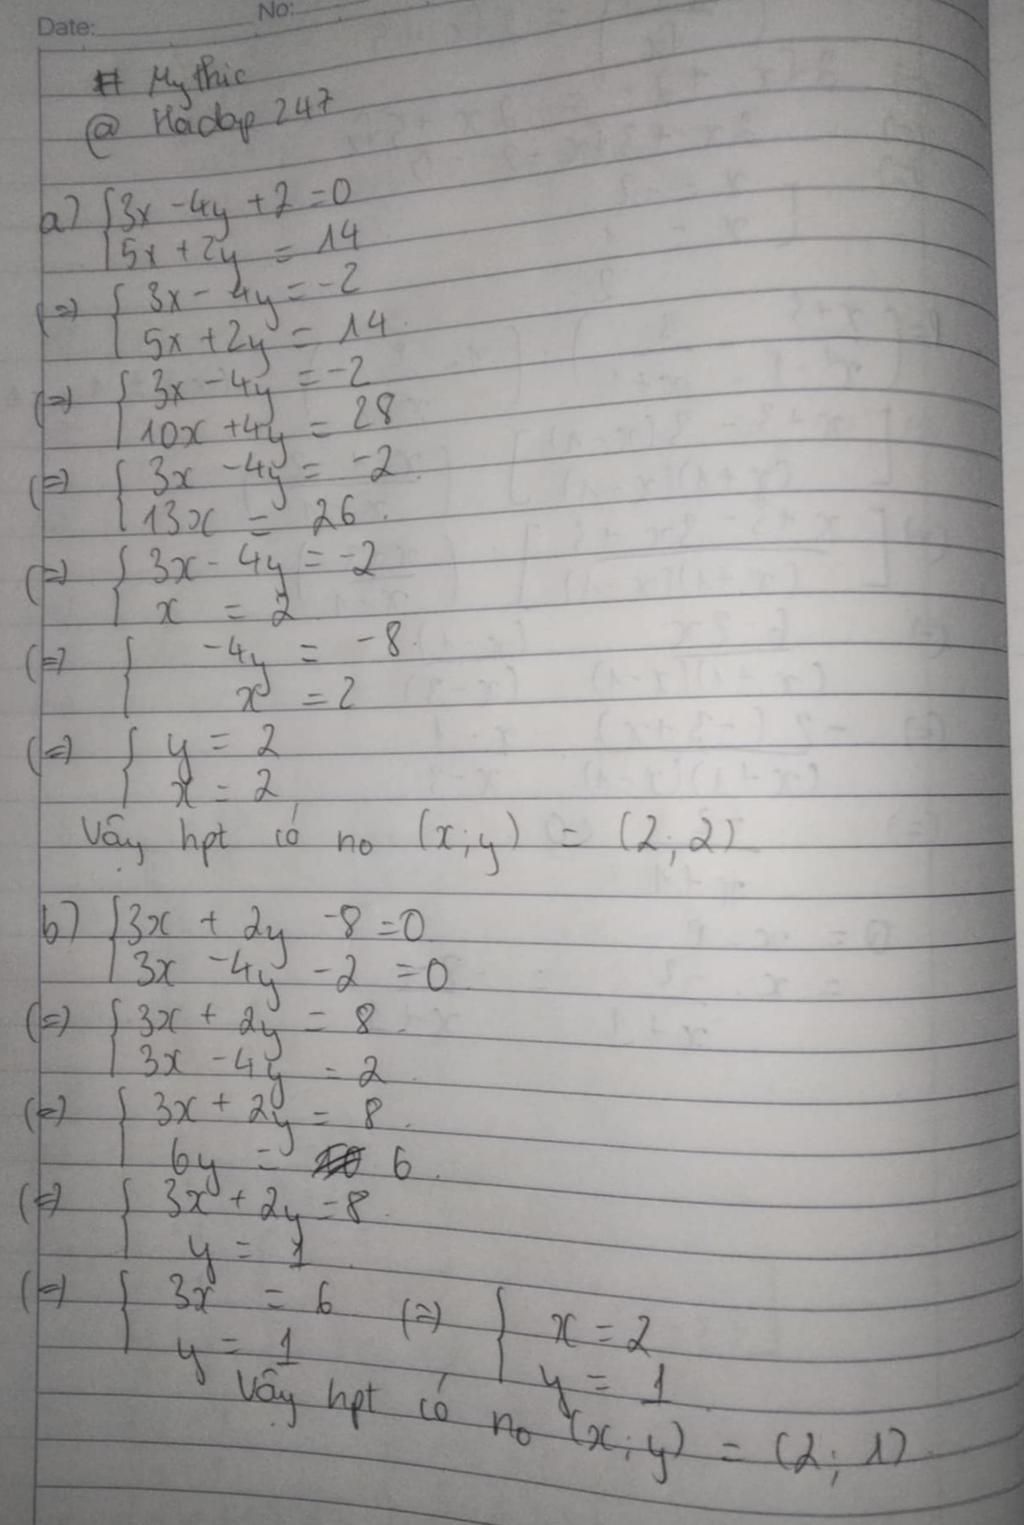 Date: No:
# Mythic
@ Hoidap 247
a) { 3x - 4y + 2 = 0
5x + 2y = 14
(=) { 3x - 4y = -2
5x + 2y = 14
(=) { 3x - 4y = -2
10x + 4y = 28
(=) { 3x - 4y = -2
13x = 26
(=) { 3x - 4y = -2
x = 2
(=) { -4y = -8
x = 2
(=) { y = 2
x = 2
Vậy hpt có no (x;y) = (2;2)
b) { 3x + 2y - 8 = 0
3x - 4y - 2 = 0
(=) { 3x + 2y = 8
3x - 4y = 2
(=) { 3x + 2y = 8
6y = 6
(=) { 3x + 2y = 8
y = 1
(=) { 3x = 6 (=) { x = 2
y = 1 y = 1
Vậy hpt có no (x;y) = (2;1)